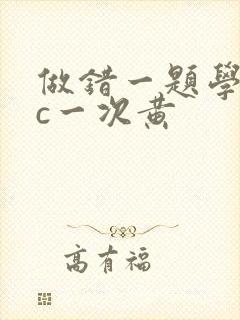 做錯一題學
c一次黃
高有福